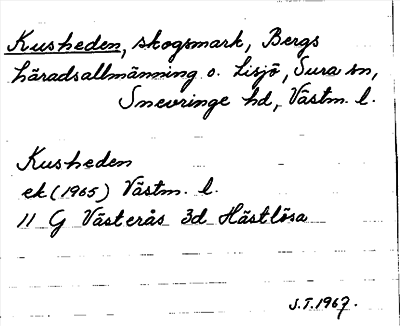 Kusheden, skogsmark, Bergs
häradsallmänning o. Lisjö, Sura sn,
Snevringe hd, Västm. l.
Kusheden
ek (1965) Västm. l.
11 G Västerås 3d Hästlösa
S.T. 1967.